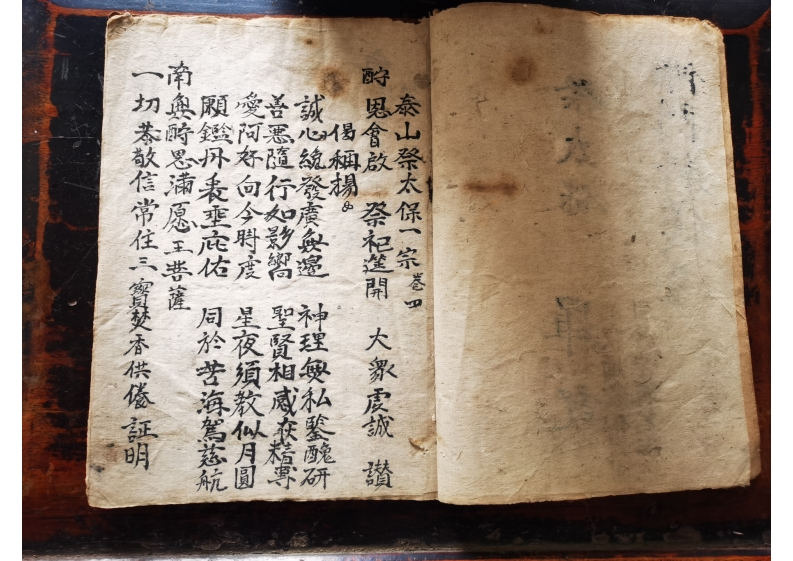 泰山祭太保一宗卷四
酧恩會啟 祭祀筵開 大衆虔誠 讃
偈稱揚
誠心纔發廣無邊 神理無私鑒醜研
善惡隨行如影嚮 聖賢相感在精專
嗳阿好向今時度 星夜須教似月圓
願鑑丹衷垂庇佑 同於苦海駕慈航
南無酧恩滿愿王菩薩
一切恭敬信常住三寳焚香供養 証明